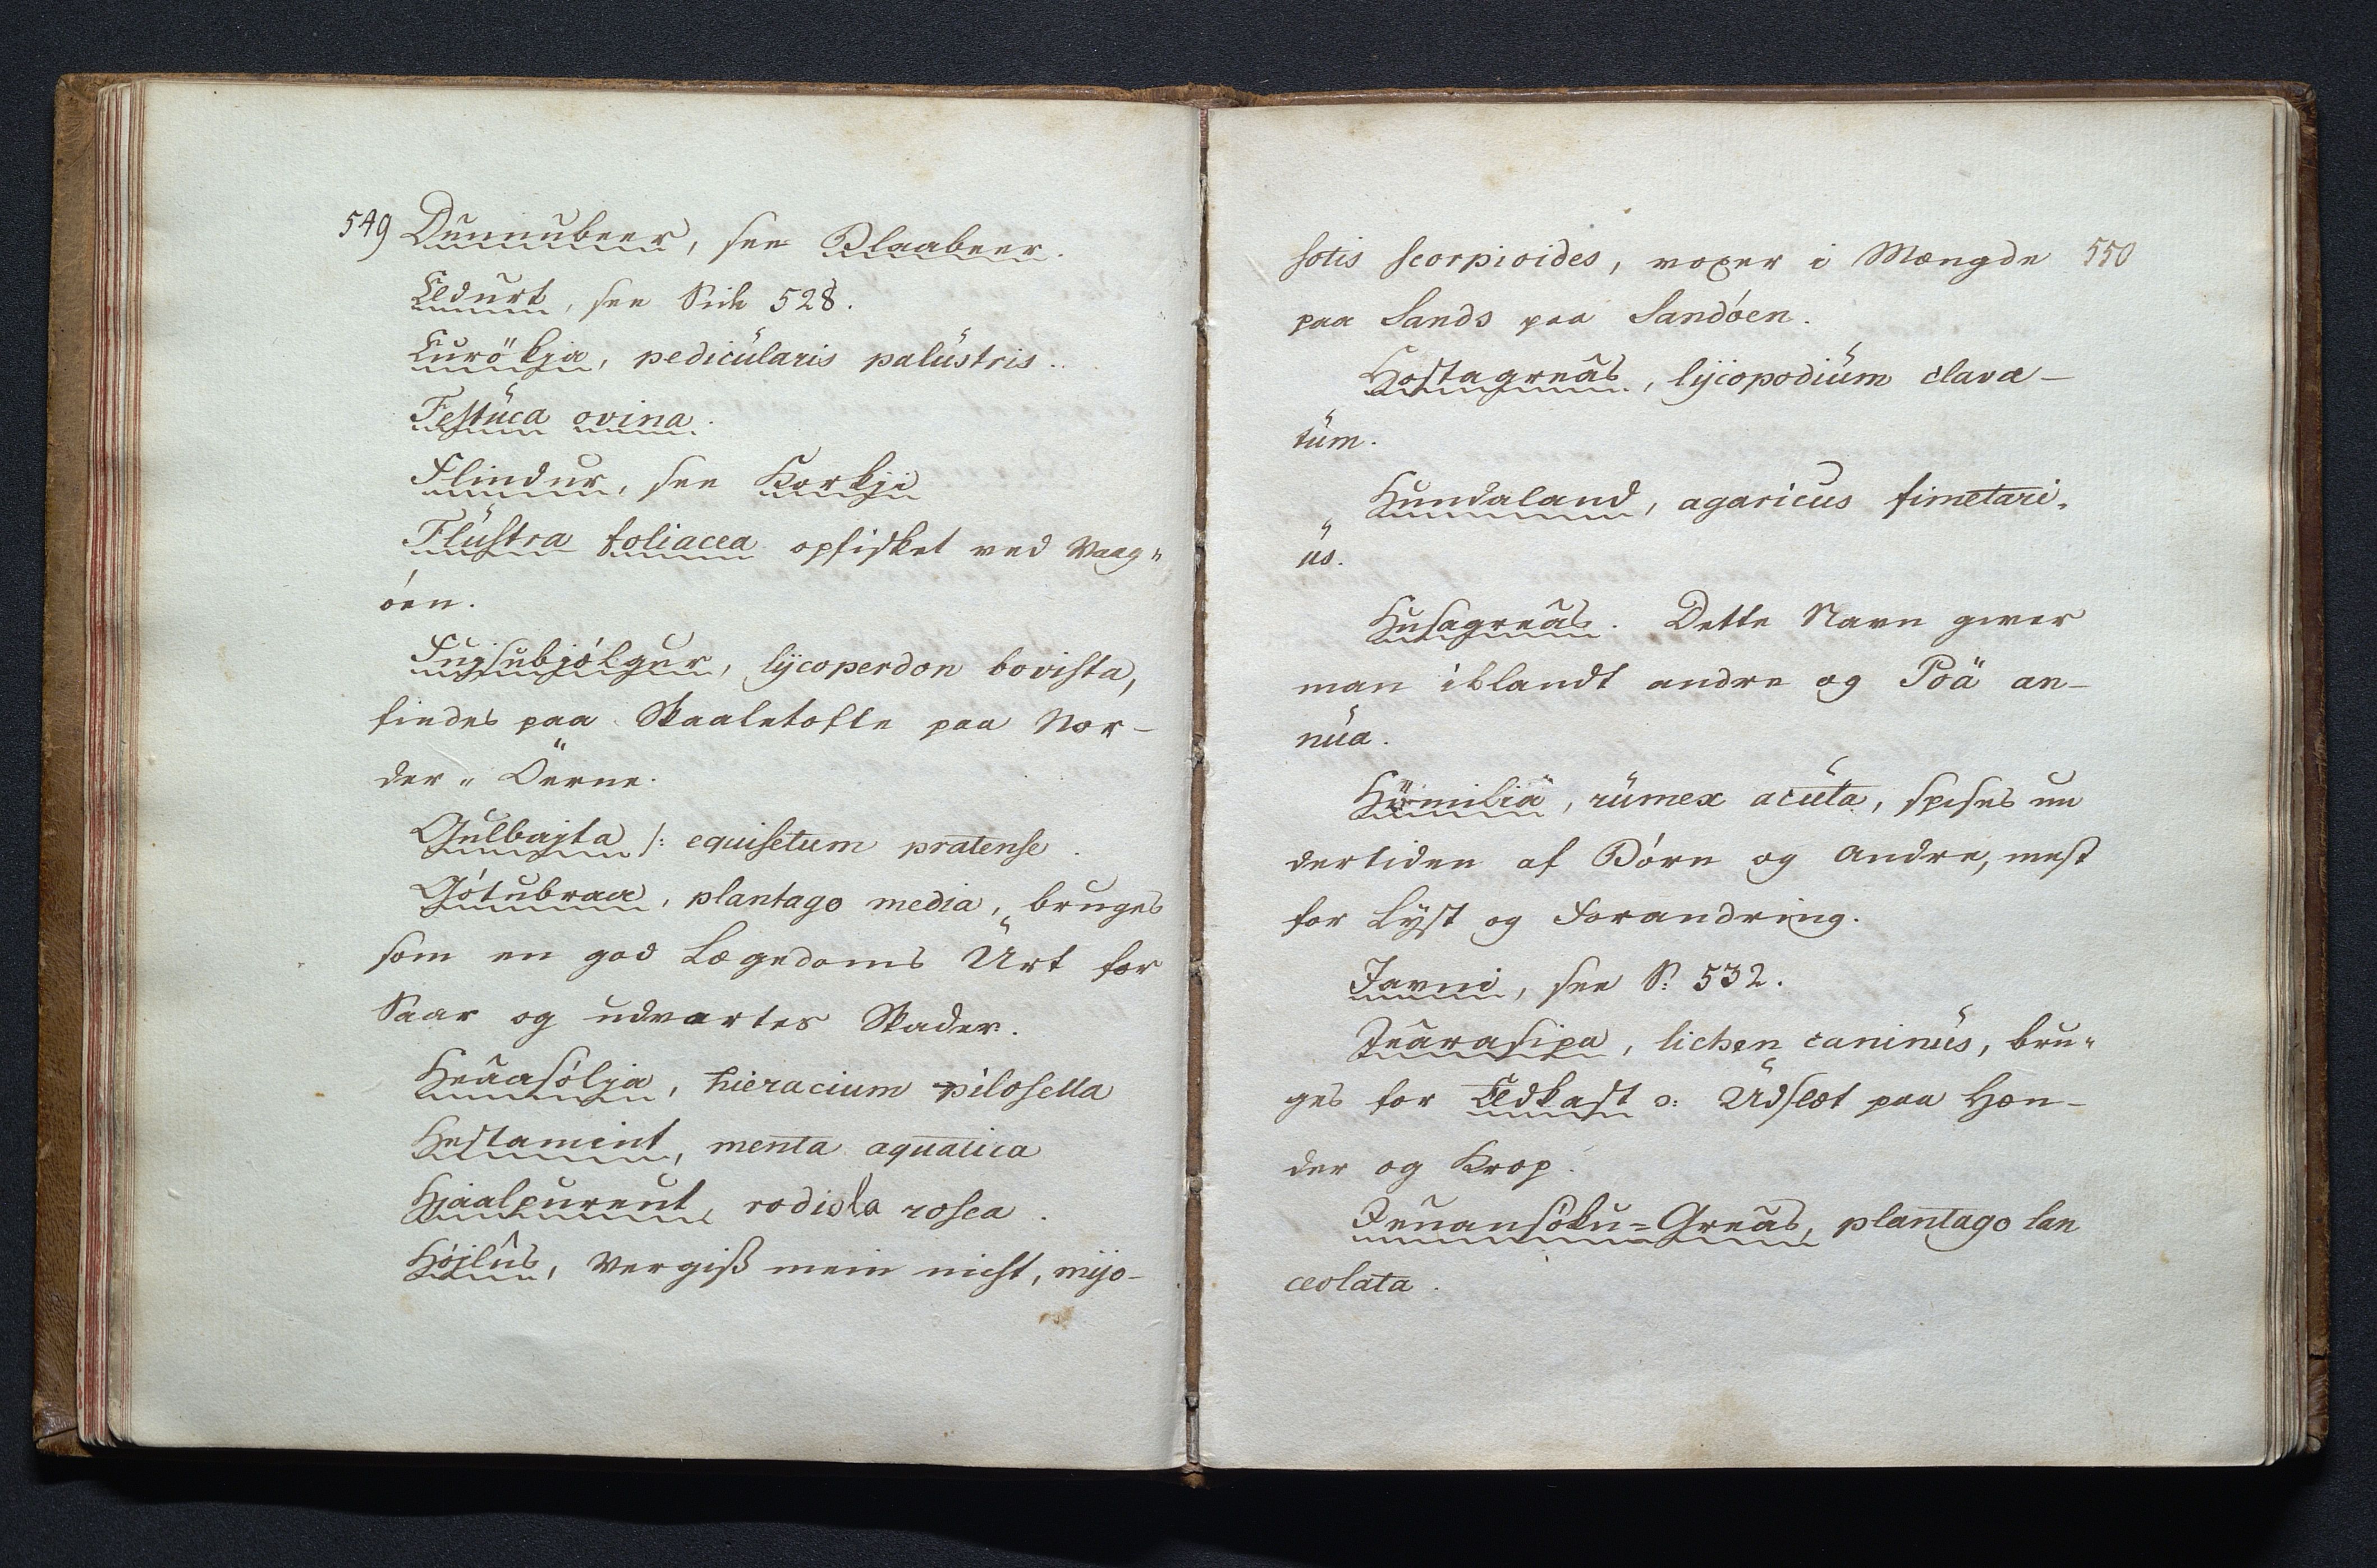 549) Dunnubeer, see Blaabeer.
Eldurt, see Side 528.
Eurökja, pedicülaris palüstris.
Festüca ovina.
Flindur, see Korkji
Flüstra foliacea opfisket ved Vaag"
öen.
Fujsubjólgur, lÿcoperdon bovista,
findes paa Skaaletofte paa Nor-
der" Öerne.
Gulbajta /: equisetum pratense.
Götubraa, plantago media, bruges
som en god Lægedoms Urt for
Saar og udvortes Skader.
Heûasólja, hieracium pilosella
Hestamint, menta aquatica
Hjaalpureut, rodiola rosea.
Hójlûs, Vergiß mein nicht, mÿo-
sotis scorpioides, voxer i Mængde 550
paa Sands paa Sandóen.
Hostagreâs, lÿcopodiŭm clava-
tŭm.
Hundaland, agaricus fimetari"
ŭs.
Husagreâs. Dette Navn giver
man iblandt andre og Pöä an-
nŭa.
Hömiliä, rümex acŭta, spises un
dertiden af Börn og andre, mest
for Lÿst og Forandring.
Javni, see S: 532.
Jeârasipa, lichen caninŭs, bru"
ges for Eldkast ɔ: Udslæt paa Hæn-
der og Krop.
Jeuansöku=Greâs, plantago lan
ceolata.